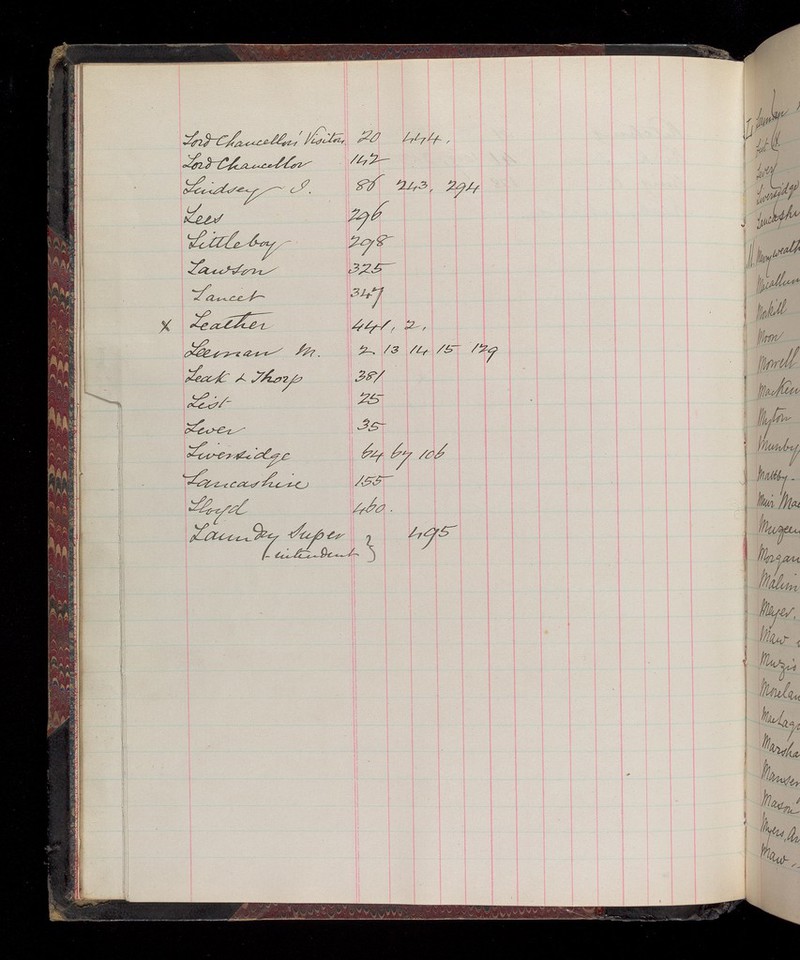 Lord Chancellors' Visitors 20 444.
Lord Chancellor 142
Lindsey J. 86 243, 294
Lees 296
Littleboy 298
Lawson 325
Lancet 347
x Leather 441, 2,
Leeman M. 2 13 14 15 129
Leak & Thorp 381
List 25
Lever 35
Liversidge 64 67 106
Lancashire 155
Lloyd 460.
Laundry Super 495
-intendent }
L
List
Lever
Liversidge
Lancashi
M. Merryweath
Macallum
Morkill
Moon
Morrell
Macken
Myton
Munby
Maltby -
Muir Mac
Morgan
Meyer.
Maw
Morelan
Marsha
Manser
Mason
Myers, An
Maw